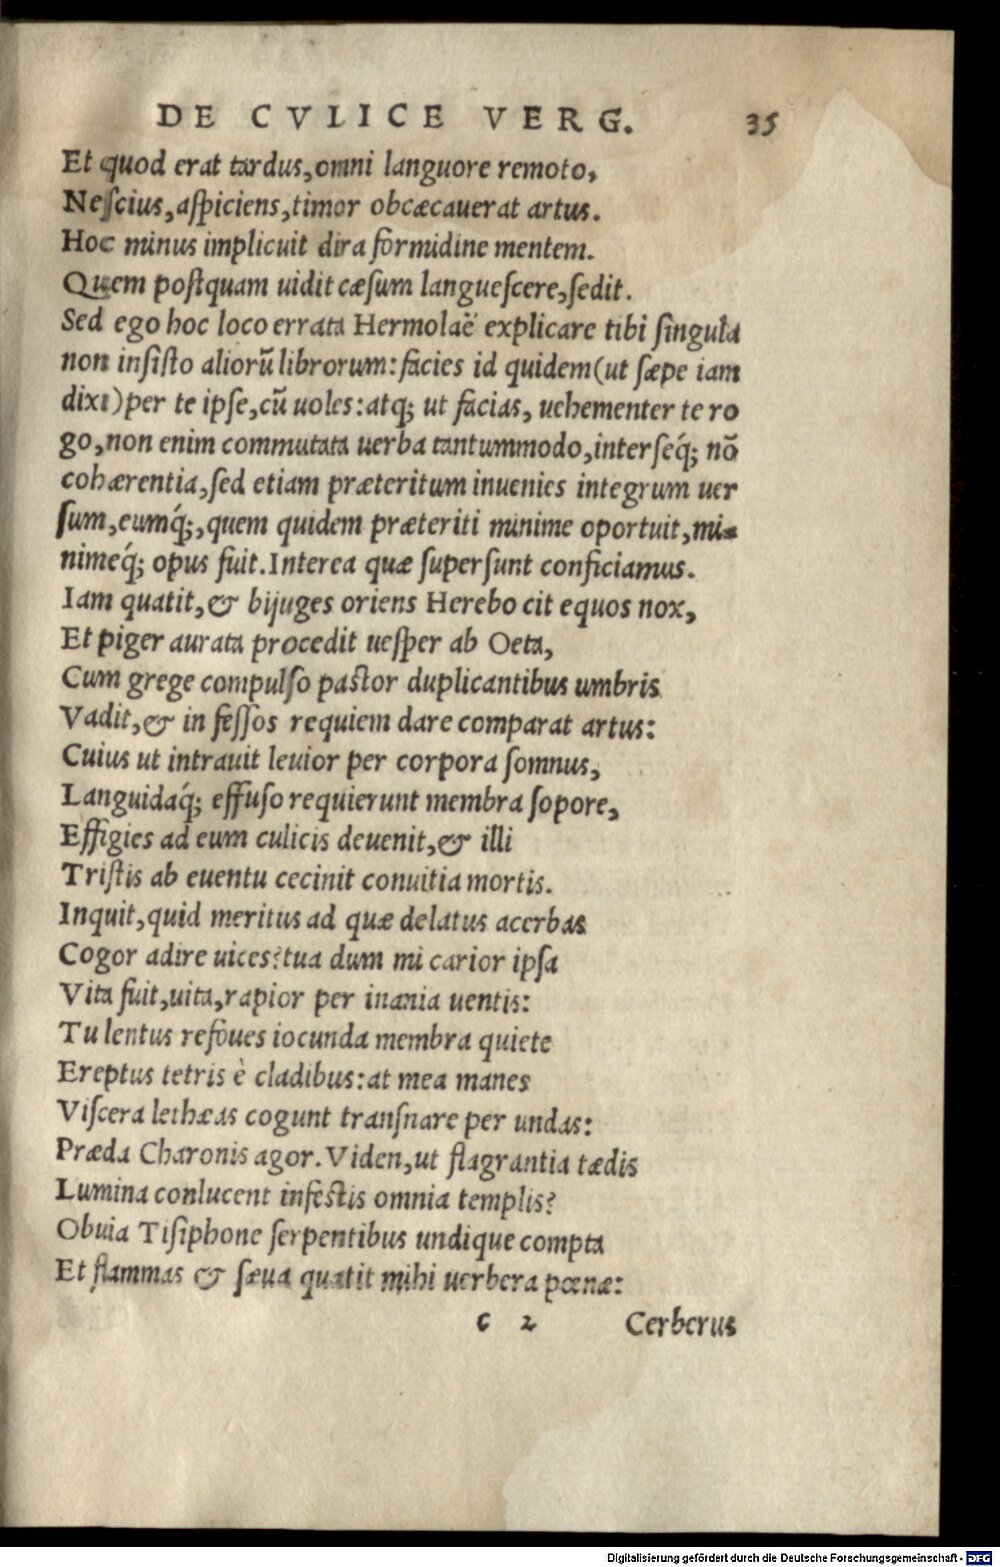 DE CVLICE VERG. 35
Et quod erat tardus, omni languore remoto,
Nescius, aspiciens, timor obcæcauerat artus.
Hoc minus implicuit dira formidine mentem.
Quem postquam uidit cæsum languescere, sedit.
Sed ego hoc loco errata Hermolaë explicare tibi singula
non insisto aliorũ librorum: facies id quidem (ut sæpe iam
dixi) per te ipse, cũ uoles: atq; ut facias, uehementer te ro
go, non enim commutata uerba tantummodo, inter seq́; nõ
cohærentia, sed etiam præteritum inuenies integrum uer
sum, eumq́;, quem quidem præteriti minime oportuit, mi-
nimeq́; opus fuit. Interea quæ supersunt conficiamus.
Iam quatit, & bijuges oriens Herebo cit equos nox,
Et piger aurata procedit uesper ab Oeta,
Cum grege compulso pastor duplicantibus umbris
Vadit, & in fessos requiem dare comparat artus:
Cuius ut intrauit leuior per corpora somnus,
Languidaq́; effuso requierunt membra sopore,
Effigies ad eum culicis deuenit, & illi
Tristis ab euentu cecinit conuitia mortis.
Inquit, quid meritus ad quæ delatus acerbas
Cogor adire uices? tua dum mi carior ipsa
Vita fuit, uita, rapior per inania uentis:
Tu lentus refoues iocunda membra quiete
Ereptus tetris è cladibus: at mea manes
Viscera lethæas cogunt transnare per undas:
Præda Charonis agor. Viden, ut flagrantia tædis
Lumina conlucent infestis omnia templis?
Obuia Tisiphone serpentibus undique compta
Et flammas & sæua quatit mihi uerbera pœnæ:
c 2 Cerberus
Digitalisierung gefördert durch die Deutsche Forschungsgemeinschaft - DFG